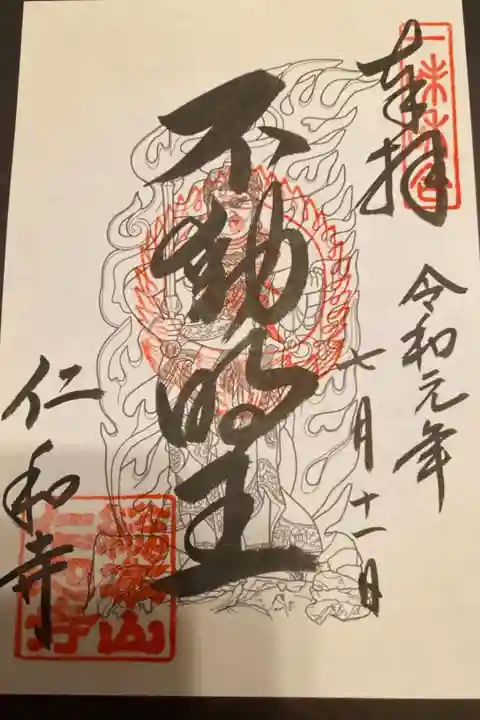 奉拝
令和元年
七月十一日
不動明王
仁和寺